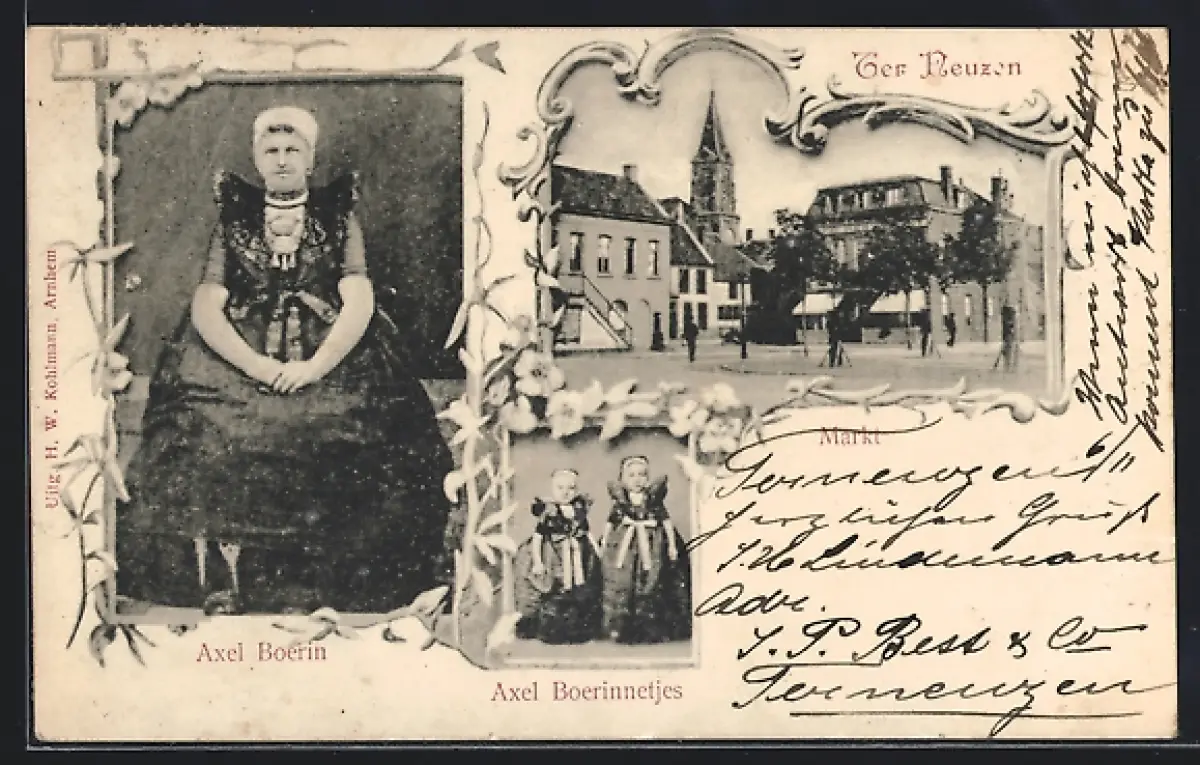 Ter Neuzen
Uitg H. W. Kohlmann, Arnhem
Markt
Axel Boerin
Axel Boerinnetjes
Terneuzen 6/11
herzlichen Gruß
Lindemann
Adr.
J. P. Best & Co
Terneuzen
Wenn
Antwort
kommt Karte zu